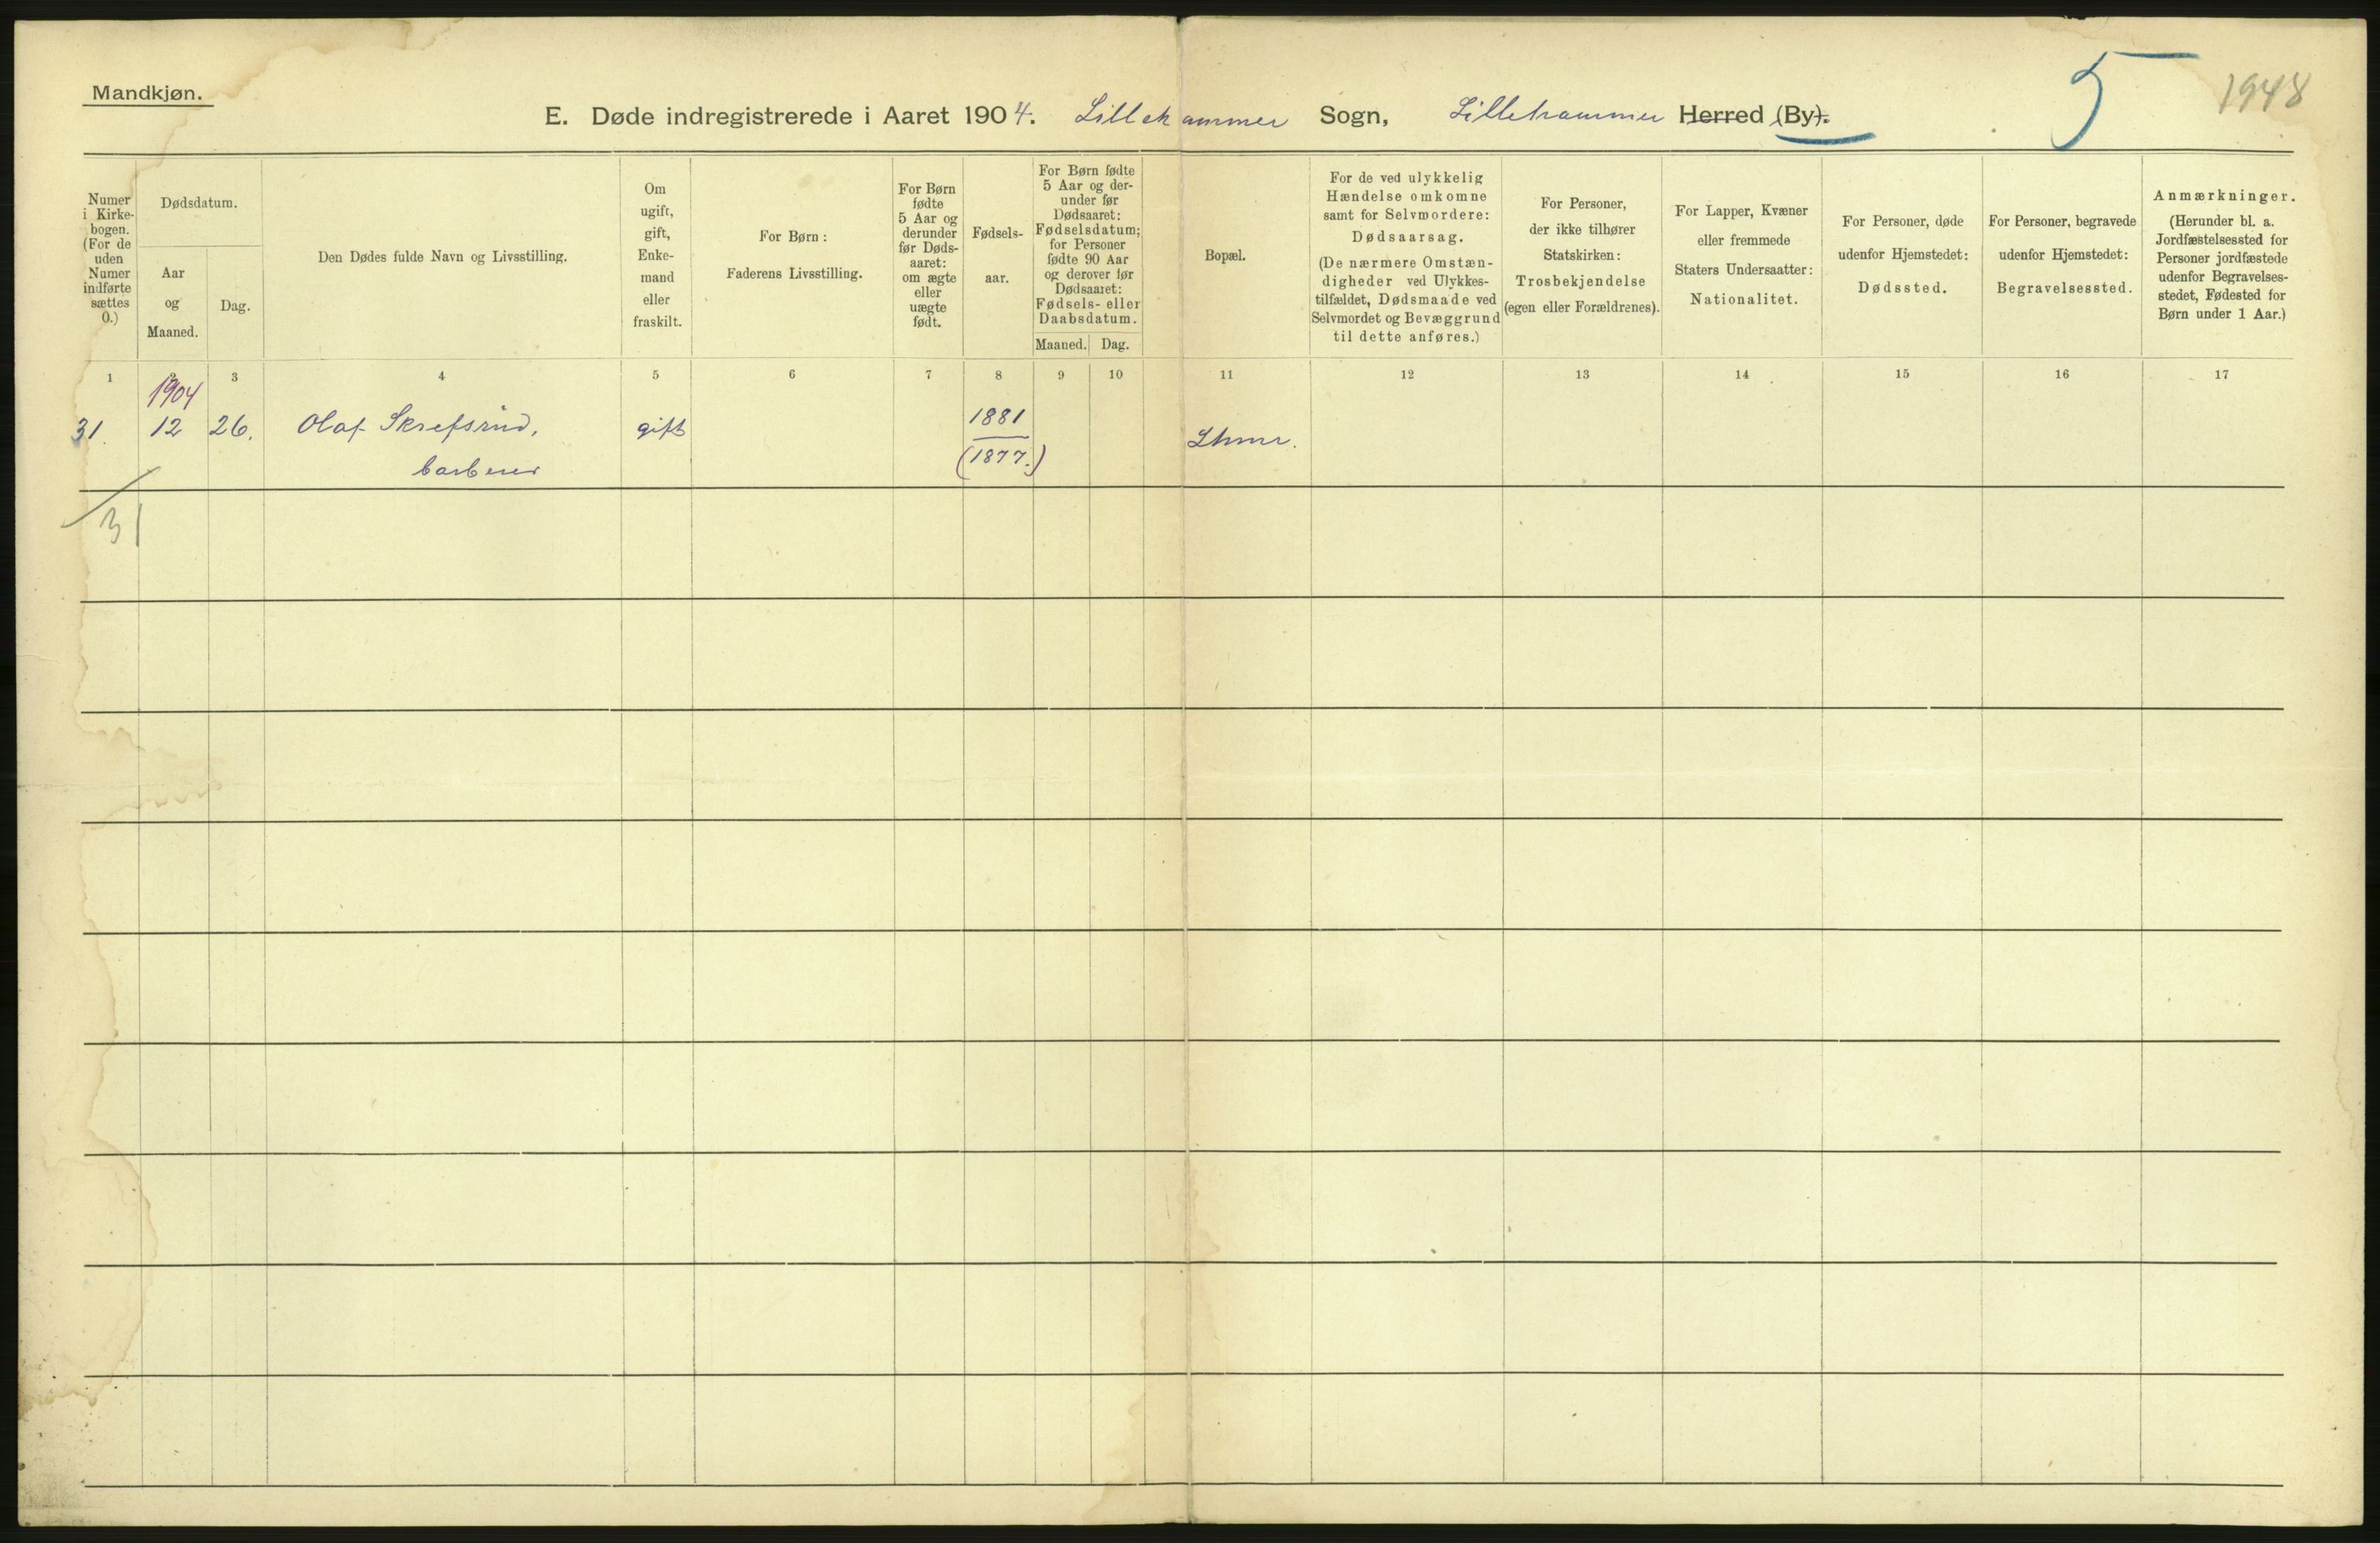 Mandkjøn.
E. Døde indregistrerede i Aaret 1904. Lillehammer Sogn, Lillehammer Herred (By).
5
1948
Numer
i Kirke-
bogen.
(For de
uden
Numer
indførte
sættes
0.)
Dødsdatum.
Aar
og
Maaned.
Dag.
Den Dødes fulde Navn og Livsstilling.
Om
ugift,
gift,
Enke-
mand
eller
fraskilt.
For Børn:
Faderens Livsstilling.
For Børn
fødte
5 Aar og
derunder
før Døds-
aaret:
om ægte
eller
uægte
født.
Fødsels-
aar.
For Børn fødte
5 Aar og der-
under før
Dødsaaret:
Fødselsdatum;
for Personer
fødte 90 Aar
og derover før
Dødsaaret:
Fødsels- eller
Daabsdatum.
Maaned. Dag.
Bopæl.
For de ved ulykkelig
Hændelse omkomne
samt for Selvmordere:
Dødsaarsag.
(De nærmere Omstæn-
digheder ved Ulykkes-
tilfældet, Dødsmaade ved
Selvmordet og Bevæggrund
til dette anføres.)
For Personer,
der ikke tilhører
Statskirken:
Trosbekjendelse
(egen eller Forældrenes).
For Lapper, Kvæner
eller fremmede
Staters Undersaatter:
Nationalitet.
For Personer, døde
udenfor Hjemstedet:
Dødssted.
For Personer, begravede
udenfor Hjemstedet:
Begravelsessted.
Anmærkninger.
(Herunder bl. a.
Jordfæstelsessted for
Personer jordfæstede
udenfor Begravelses-
stedet, Fødested for
Børn under 1 Aar.)
1 2 3 4 5 6 7 8 9 10 11 12 13 14 15 16 17
1904
31. 12 26. Olaf Skrefsrud, gift 1881 Lhmr.
barberer (1877.)
31